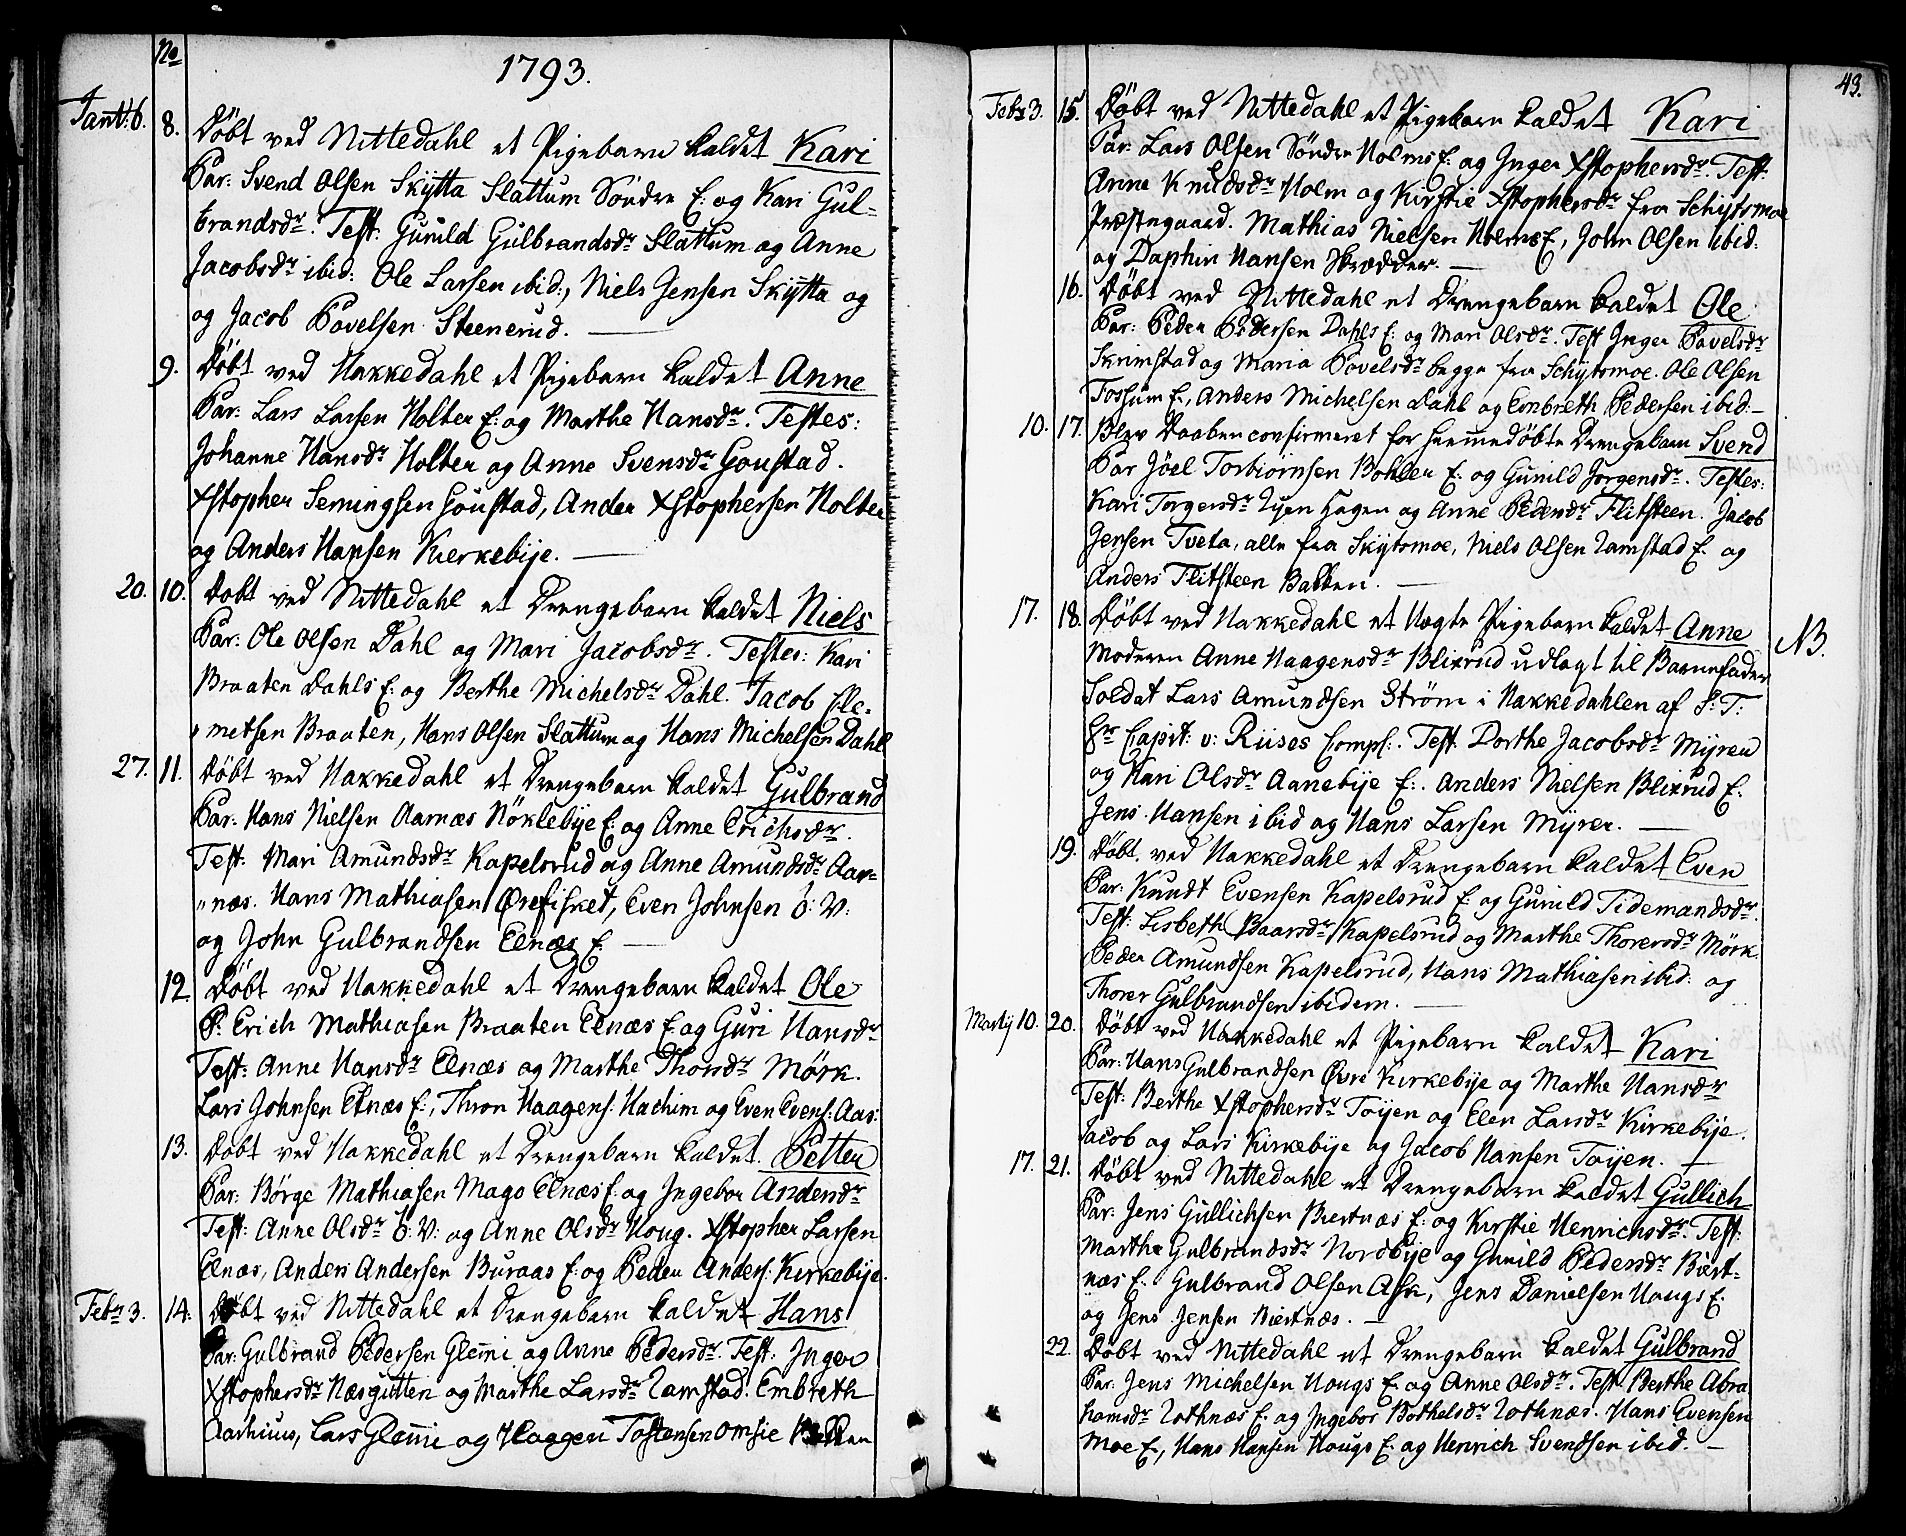 No
1793.
Janr: 6. 8. Döbt ved Nittedahl et Pigebarn kaldet Kari
Par: Svend Olsen Skÿtta Slattum Söndre E: og Kari Gul-
brandsdr: Test: Gunild Gulbrandsdr Slattum og Anne
Jacobsdr ibid: Ole Larsen ibid:, Niels Jensen Skÿtta og
og Jacob Povelsen Steenerud.
9. Döbt ved Hakkedahl et Pigebarn kaldet Anne
Par: Lars Larsen Holter E: og Marthe Hansdr. Testes:
Johanne Hansdr Holter og Anne Svensdr Goustad.
Xstopher Semingsen Goustad, Ander Xstophersen Holter
og Anders Hansen Kierkebÿe.
20. 10. Döbt ved Nittedahl et Drengebarn kaldet Niels
Par: Ole Olsen Dahl og Mari Jacobsdr. Testes: Kari
Braaten Dahls E: og Berthe Michelsdr Dahl. Jacob Cle-
metsen Braaten, Hans Olsen Slattum og Hans Michelsen Dahl
27. 11. Döbt ved Hakkedahl et Drengebarn kaldet Gulbrand
Par: Hans Nielsen Aarnæs Nöklebÿe E: og Anne Erichsdr.
Test: Mari Amundsdr Kapelsrud og Anne Amundsdr Aar-
næs. Hans Mathiasen Ørefisket, Even Johnsen ö: V:
og John Gulbrandsen Elnæs E.
12. Döbt ved Hakkedahl et Drengebarn kaldet Ole
P: Erich Mathiasen Braaten Elnæs E og Guri Hansdr
Test: Anne Hansdr Elnæs og Marthe Thorsdr Mörk.
Lars Johnsen Elnæs E:, Thron Haagens: Hachim og Even Evens: Aas:
13. Döbt ved Hakkedahl et Drengebarn kaldet Petter
Par: Börge Mathiasen Mago Elnæs E: og Ingebor Andersdr
Test: Anne Olsdr ö: V: og Anne Olsdr Houg. Xstopher Larsen
Elnæs, Anders Andersen Buraas E: og Peder Anders: Kirkebÿe.
Febr 3. 14. Döbt ved Nittedahl et Drengebarn kaldet Hans
Par: Gulbrand Pedersen Glemi og Anne Pedersdr. Test: Inger
Xstophersdr Næsgutten og Marthe Larsdr Lamstad. Embreth
Aarhuus, Lars Glemi og Haagen Tostensen Omsie
43.
Febr 3. 15. Döbt ved Nittedahl et Pigebarn kaldet Kari
Par: Lars Olsen Söndre Holms E: og Inger Xstophersdr. Test:
Anne Knudsdr Holm og Kirstie Xstophersdr fra Schÿtsmoe
Præstegaard. Mathias Nielsen Holms E, John Olsen ibid:
og Daphin Hansen Skrædder.
16. Döbt ved Nittedahl et Drengebarn kaldet Ole
Par: Peder Pedersen Dahls E: og Mari Olsdr. Test Inger Povelsdr
Skrimstad og Maria Povelsdr begge fra Schÿtsmoe. Ole Olsen
Fossum E., Anders Michelsen Dahl og Enbreth Pedersen ibid:
10. 17. Blev Daaben confirmeret for hiemmedöbte Drengebarn Svend
Par Jöel Torbiörnsen Bohler E: og Gunild Jorgensdr. Testes:
Kari Torgersdr Hagen og Anne Pedersdr Flitsteen. Jacob
Jensen Tveta, alle fra Skÿtsmoe, Niels Olsen Lamstad E. og
Anders Flitsteen Bakken.
17. 18. Döbt ved Hakkedahl et Uægte Pigebarn kaldet Anne NB.
Moderen Anne Haagensdr Blixrud udlagt til Barnefader
Soldat Lars Amundsen Ström i Hakkedahlen af S: T:
Hr Capit: v: Riises Comp:. Test. Dorthe Jacobsdr Mÿren
og Kari Olsdr Aanebÿe E:. Anders Nielsen Blixrud E.
Jens Hansen ibid og Hans Larsen Mÿrer.
19. Döbt ved Hakkedahl et Drengebarn kaldet Even
Par: Knudt Evensen Kapelsrud E: og Gunild Tidemandsdr.
Test: Lisbeth Baarsdr Kapelsrud og Marthe Thorersdr Mörk
Peder Amundsen Kapelsrud, Hans Mathiasen ibid: og
Thorer Gulbrandsen ibidem.
Martij 10. 20. Döbt ved Hakkedahl et Pigebarn kaldet Kari
Par: Hans Gulbrandsen Øvre Kirkebÿe og Marthe Hansdr
Test: Berthe Xstophersdr Töÿen og Elen Larsdr Kirkebÿe.
Jacob og Lars Kirkebÿe og Jacob Hansen Töÿen.
17. 21. Döbt ved Nittedahl et Drengebarn kaldet Gullich
Par: Jens Gullichsen Biertnæs E: og Kirstie Henrichsdr. Test:
Marthe Gulbrandsdr Nordbÿe og Gunild Pedersdr Biert-
næs E: Gulbrand Olsen Ask, Jens Danielsen Hougs E:
og Jens Jensen Biertnæs.
22. Döbt ved Nittedahl et Drengebarn kaldet Gulbrand
Par: Jens Michelsen Hougs E. og Anne Olsdr. Test Berthe Abra
hamsdr Rothnæs E: og Ingebor Bothelsdr Rothnæs. Hans Evensen
Moe E., Hans Hansen Hougs E: og Henrich Svendsen ibid.